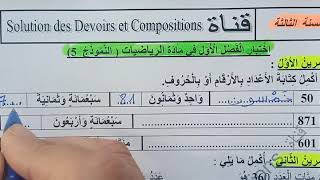 السنة الثالثة Solution des Devoirs et Compositions قناة
اختبار الفصل الأول في مادة الرياضيات ( النموذج 5)
التمرين الأول:
أكمل كتابة الأعداد بالأرقام أو بالحروف.
50 خمسون واحد وثمانون 81 سبعمائة وثمانية 7
871 سبعمائة وأربعون
651
التمرين الثاني: أكمل ما يلي:
مئات العدد 360 هو